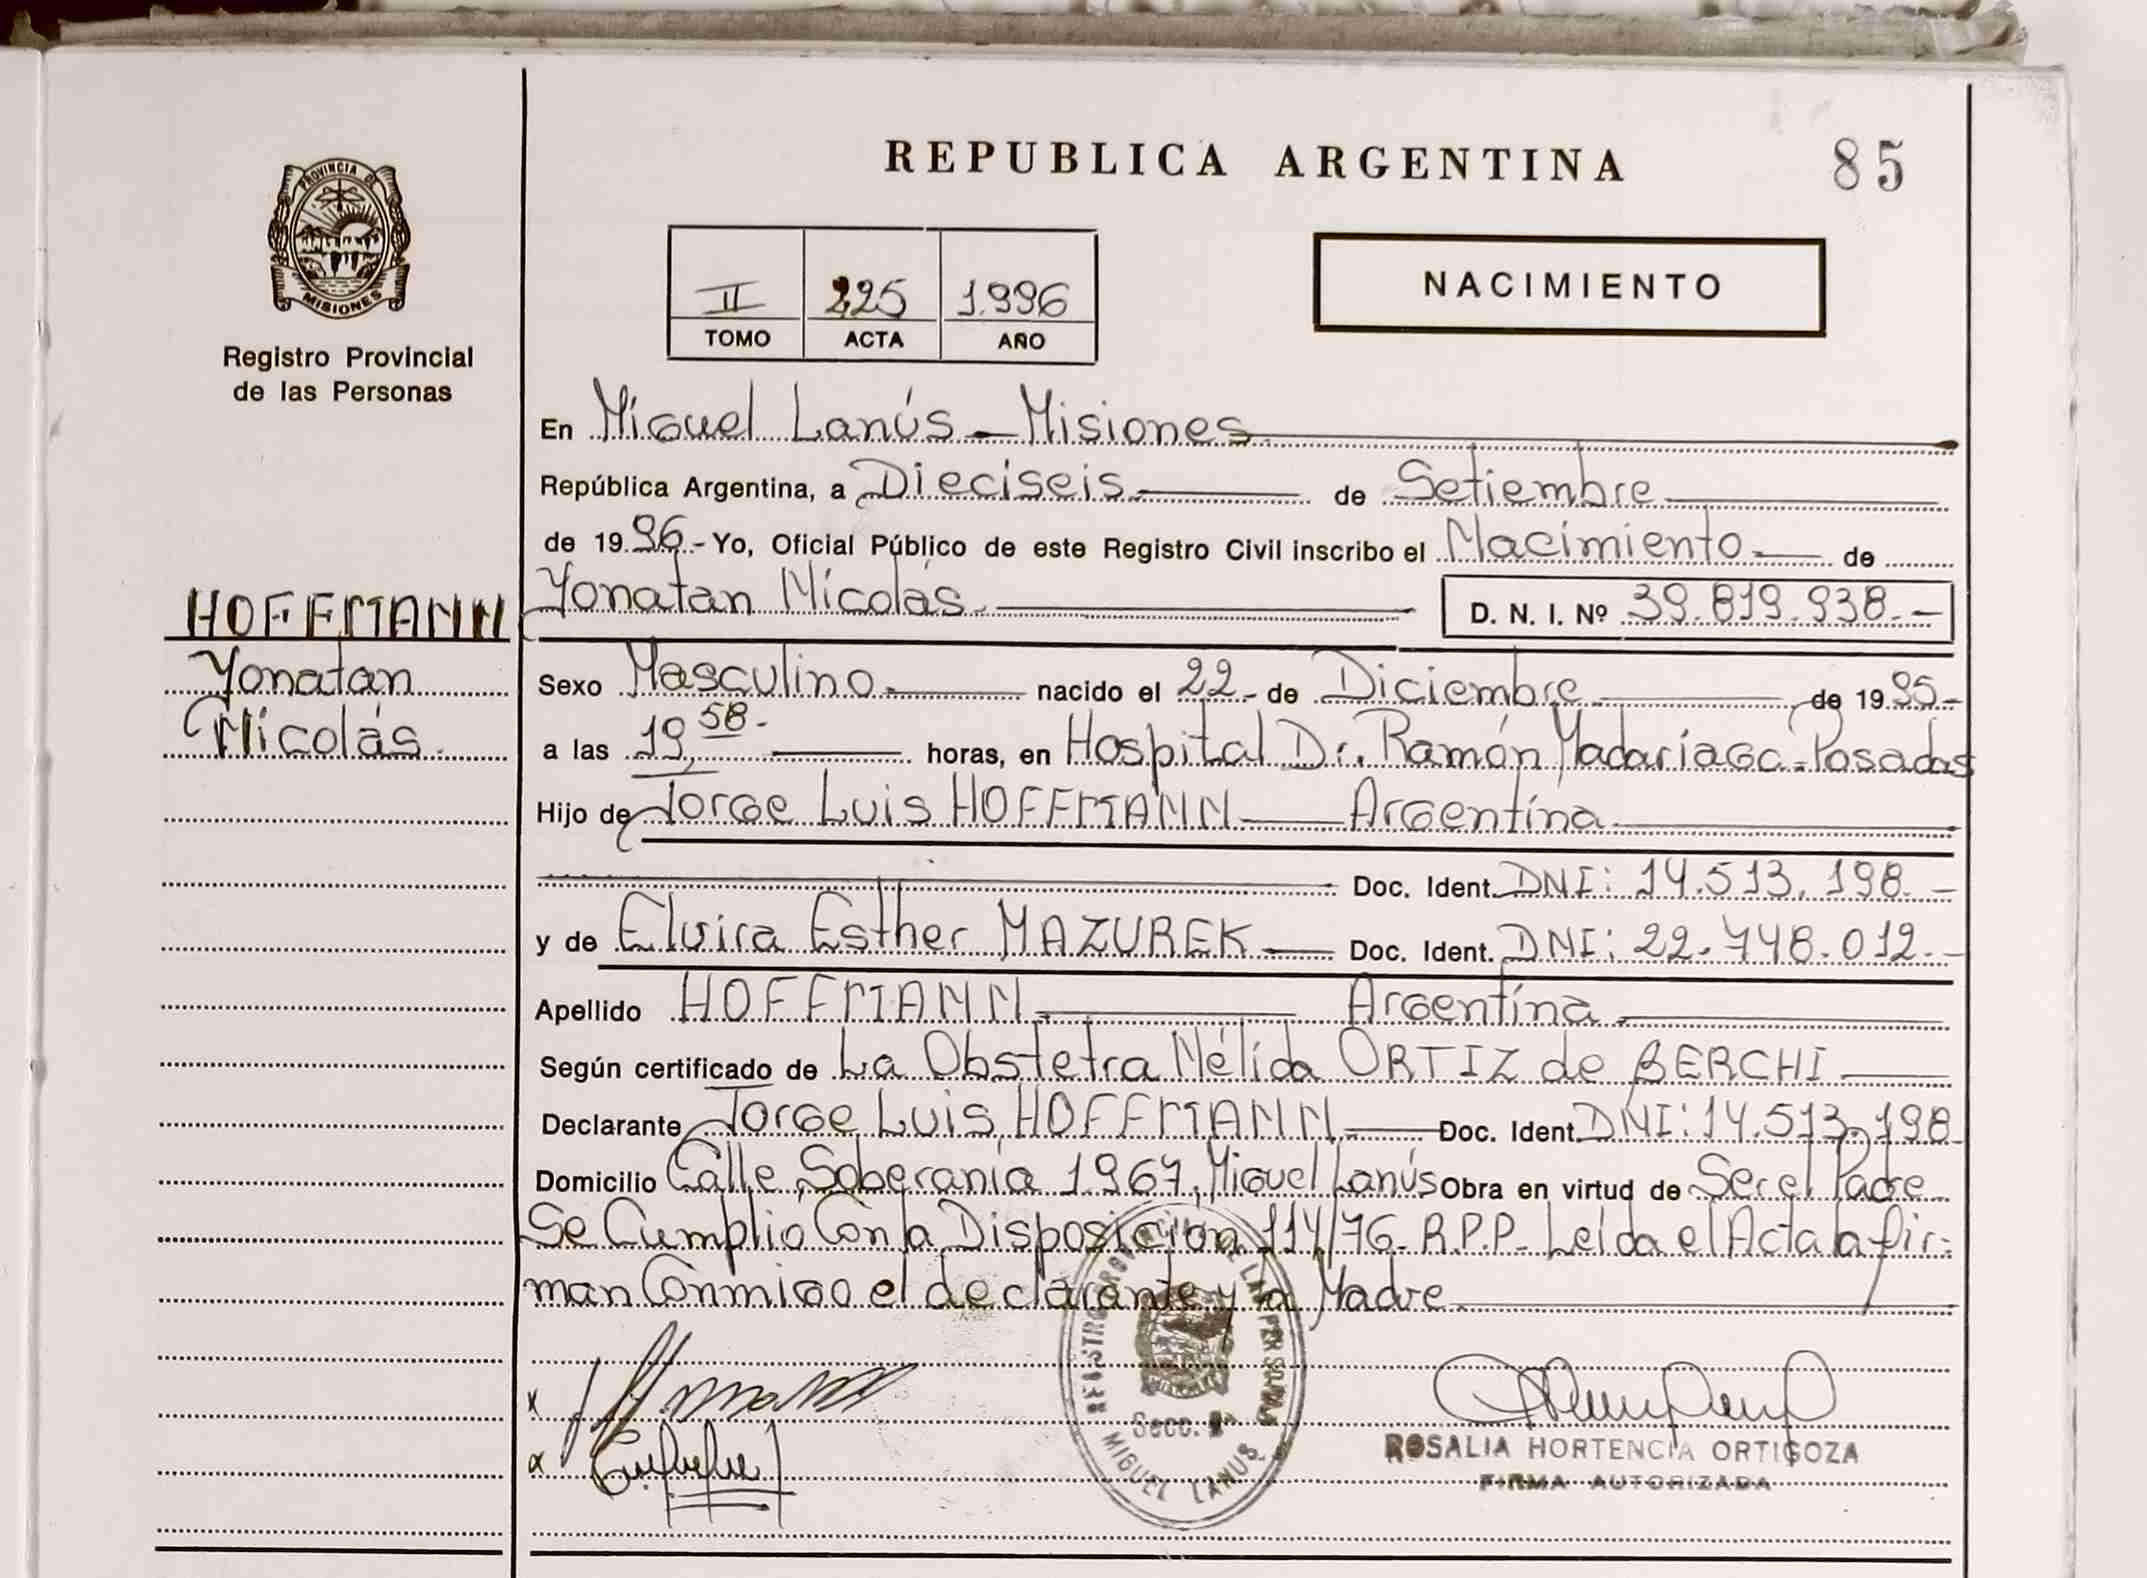 REPUBLICA ARGENTINA
85
PROVINCIA DE
MISIONES
Registro Provincial
de las Personas
II 225 1.996
TOMO ACTA AÑO
NACIMIENTO
En Miguel Lanús - Misiones
República Argentina, a Dieciseis de Setiembre
de 1996.- Yo, Oficial Público de este Registro Civil inscribo el Nacimiento de
HOFFMANN
Yonatan
Nicolás.
Yonatan Nicolás. D. N. I. Nº 39.819.938.-
Sexo Masculino. nacido el 22.- de Diciembre de 1995.-
a las 19,58.- horas, en Hospital Dr. Ramón Madariaga - Posadas
Hijo de Jorge Luis HOFFMANN Argentina
Doc. Ident. DNI: 14.513.198.-
y de Elvira Esther MAZUREK Doc. Ident. DNI: 22.748.012.-
Apellido HOFFMANN. Argentina
Según certificado de La Obstetra Nélida ORTIZ de BERCHI
Declarante Jorge Luis HOFFMANN Doc. Ident. DNI: 14.513.198
Domicilio Calle Soberanía 1.967, Miguel Lanús Obra en virtud de Ser el Padre
Se Cumplio Con la Disposición 114/76- R.P.P- Leída el Acta la fir-
man Conmigo el declarante y la Madre
REGISTRO PROVINCIAL DE LAS PERSONAS
Secc.
MIGUEL LANUS
ROSALIA HORTENCIA ORTIGOZA
FIRMA AUTORIZADA